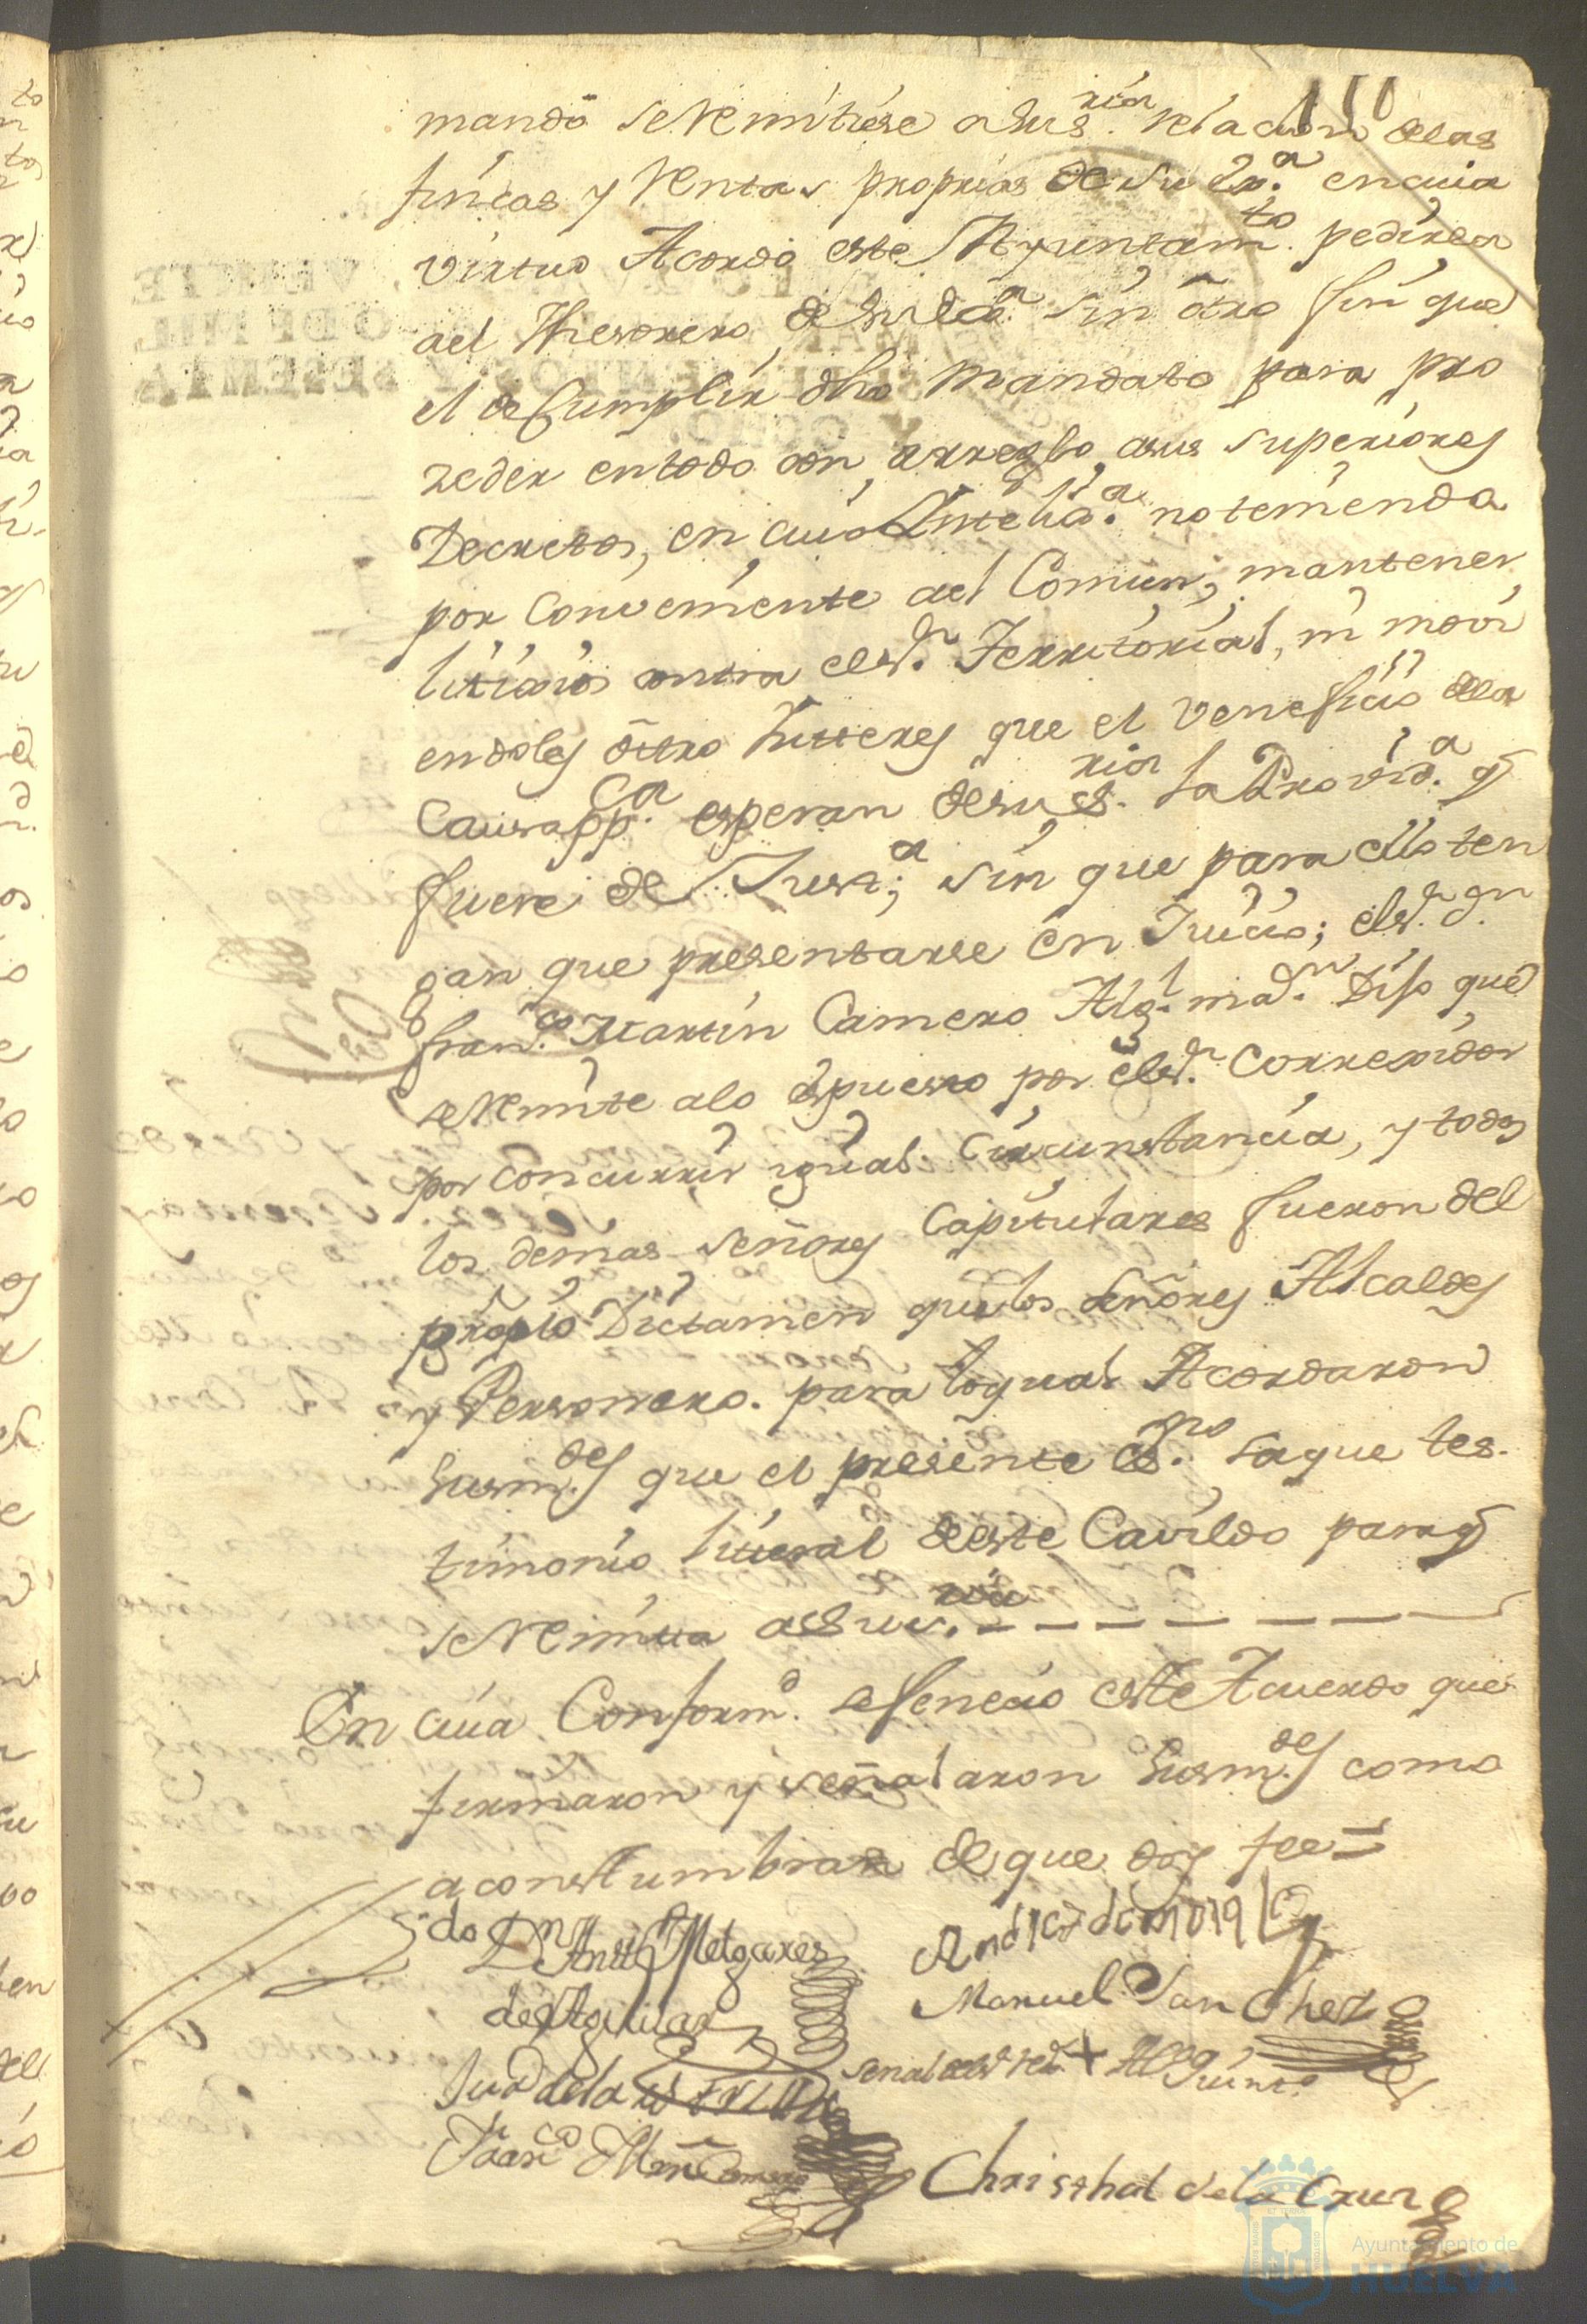 110
mandó se Remitiese a Sus.ria relacion delas
fincas y Rentas proprias de su Ex.a en cuia
virtud Acordó este Ayuntam.to pedirla
al Thesorero, de su Ex.a sin otro fin que
el de Cumplir dho Mandato para pro
zeder en todo con arreglo asus superiores
Decretos, en cuia Intelia.a no teniendo
por Conveniente al Comun, mantener
litixios contra el S.r Territorial, ni movi
endoles ôttro Intteres que el Veneficio dela
Causa pp.ca esperan de su S.ria la Provid.a q
fuere de Just.a; sin que para ello ten
gan que presentarse en Juicio; el S.r Dn
fran.co Martin Camero Alg.l ma.r Dijo que
se Remite alo Espuesto por el S.r Correxidor
por concurrir igual Circunstancia, y todos
los demas señores Capitulares fueron del
proprio Dictamen que los señores Alcaldes
y Personero. para loqual Acordaron
Susm.des que el presente es.no saque tes-
timonio literal de este Cavildo para q
se Remita a Su S.ria
En cuia Conform.d se fenecio este Acuerdo que
firmaron y señalaron Susm.des como
aconstumbran de que doy fee=
do Dn Antt.o Melgarexo
de Aguilar
Manuel Sanchez
señal del S.r Red.r + Alº Quinto
Juº dela
Fran.co Mrn Camero
Christhal dela Cruz
Ayuntamiento de
HUELVA